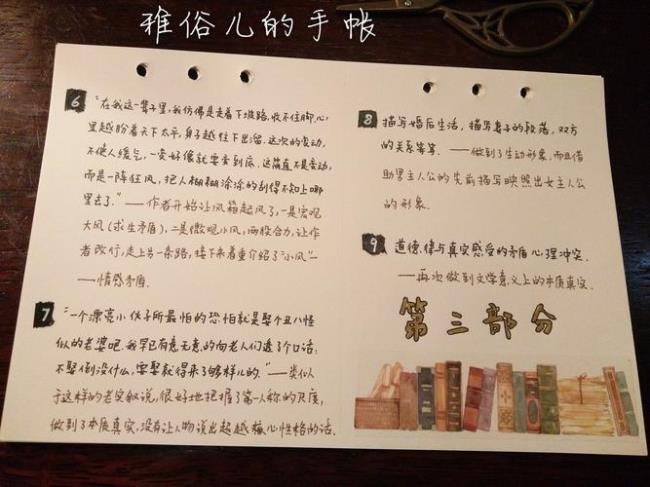 雅俗儿的手帐
6 "在我这一辈子里,我仿佛是走着下坡路,收不住脚。心
里越盼着天下太平,身子越往下出溜。这次的变动,
不使人缓气,一变好像就要变到底。这简直不是变动,
而是一阵狂风,把人糊糊涂涂的刮得不知上哪
里去了。"——作者开始让风箱起风了,一是宏观
大风(求生矛盾),二是微观小风,两股合力,让作
者改行,走上另一条路,接下来着重介绍了"小风"—
——情感矛盾.
7 "一个漂亮小伙子所最怕的恐怕就是娶个丑八怪
似的老婆吧。我早已有意无意的向老人们透了个口话:
不娶倒没什么,要娶就得来个够样儿的."——类似
于这样的老实叙说,很好地把握了第一人称的尺度,
做到了本质真实,没有让人物说出超越核心性格的话.
8 描写婚后生活,描写妻子的段落,双方
的关系等等.——做到了生动形象,而且借
助男主人公的先前描写映照出女主人公
的形象.
9 道德律与真实感受的矛盾心理冲突.
——再次做到文学意义上的本质真实.
第三部分